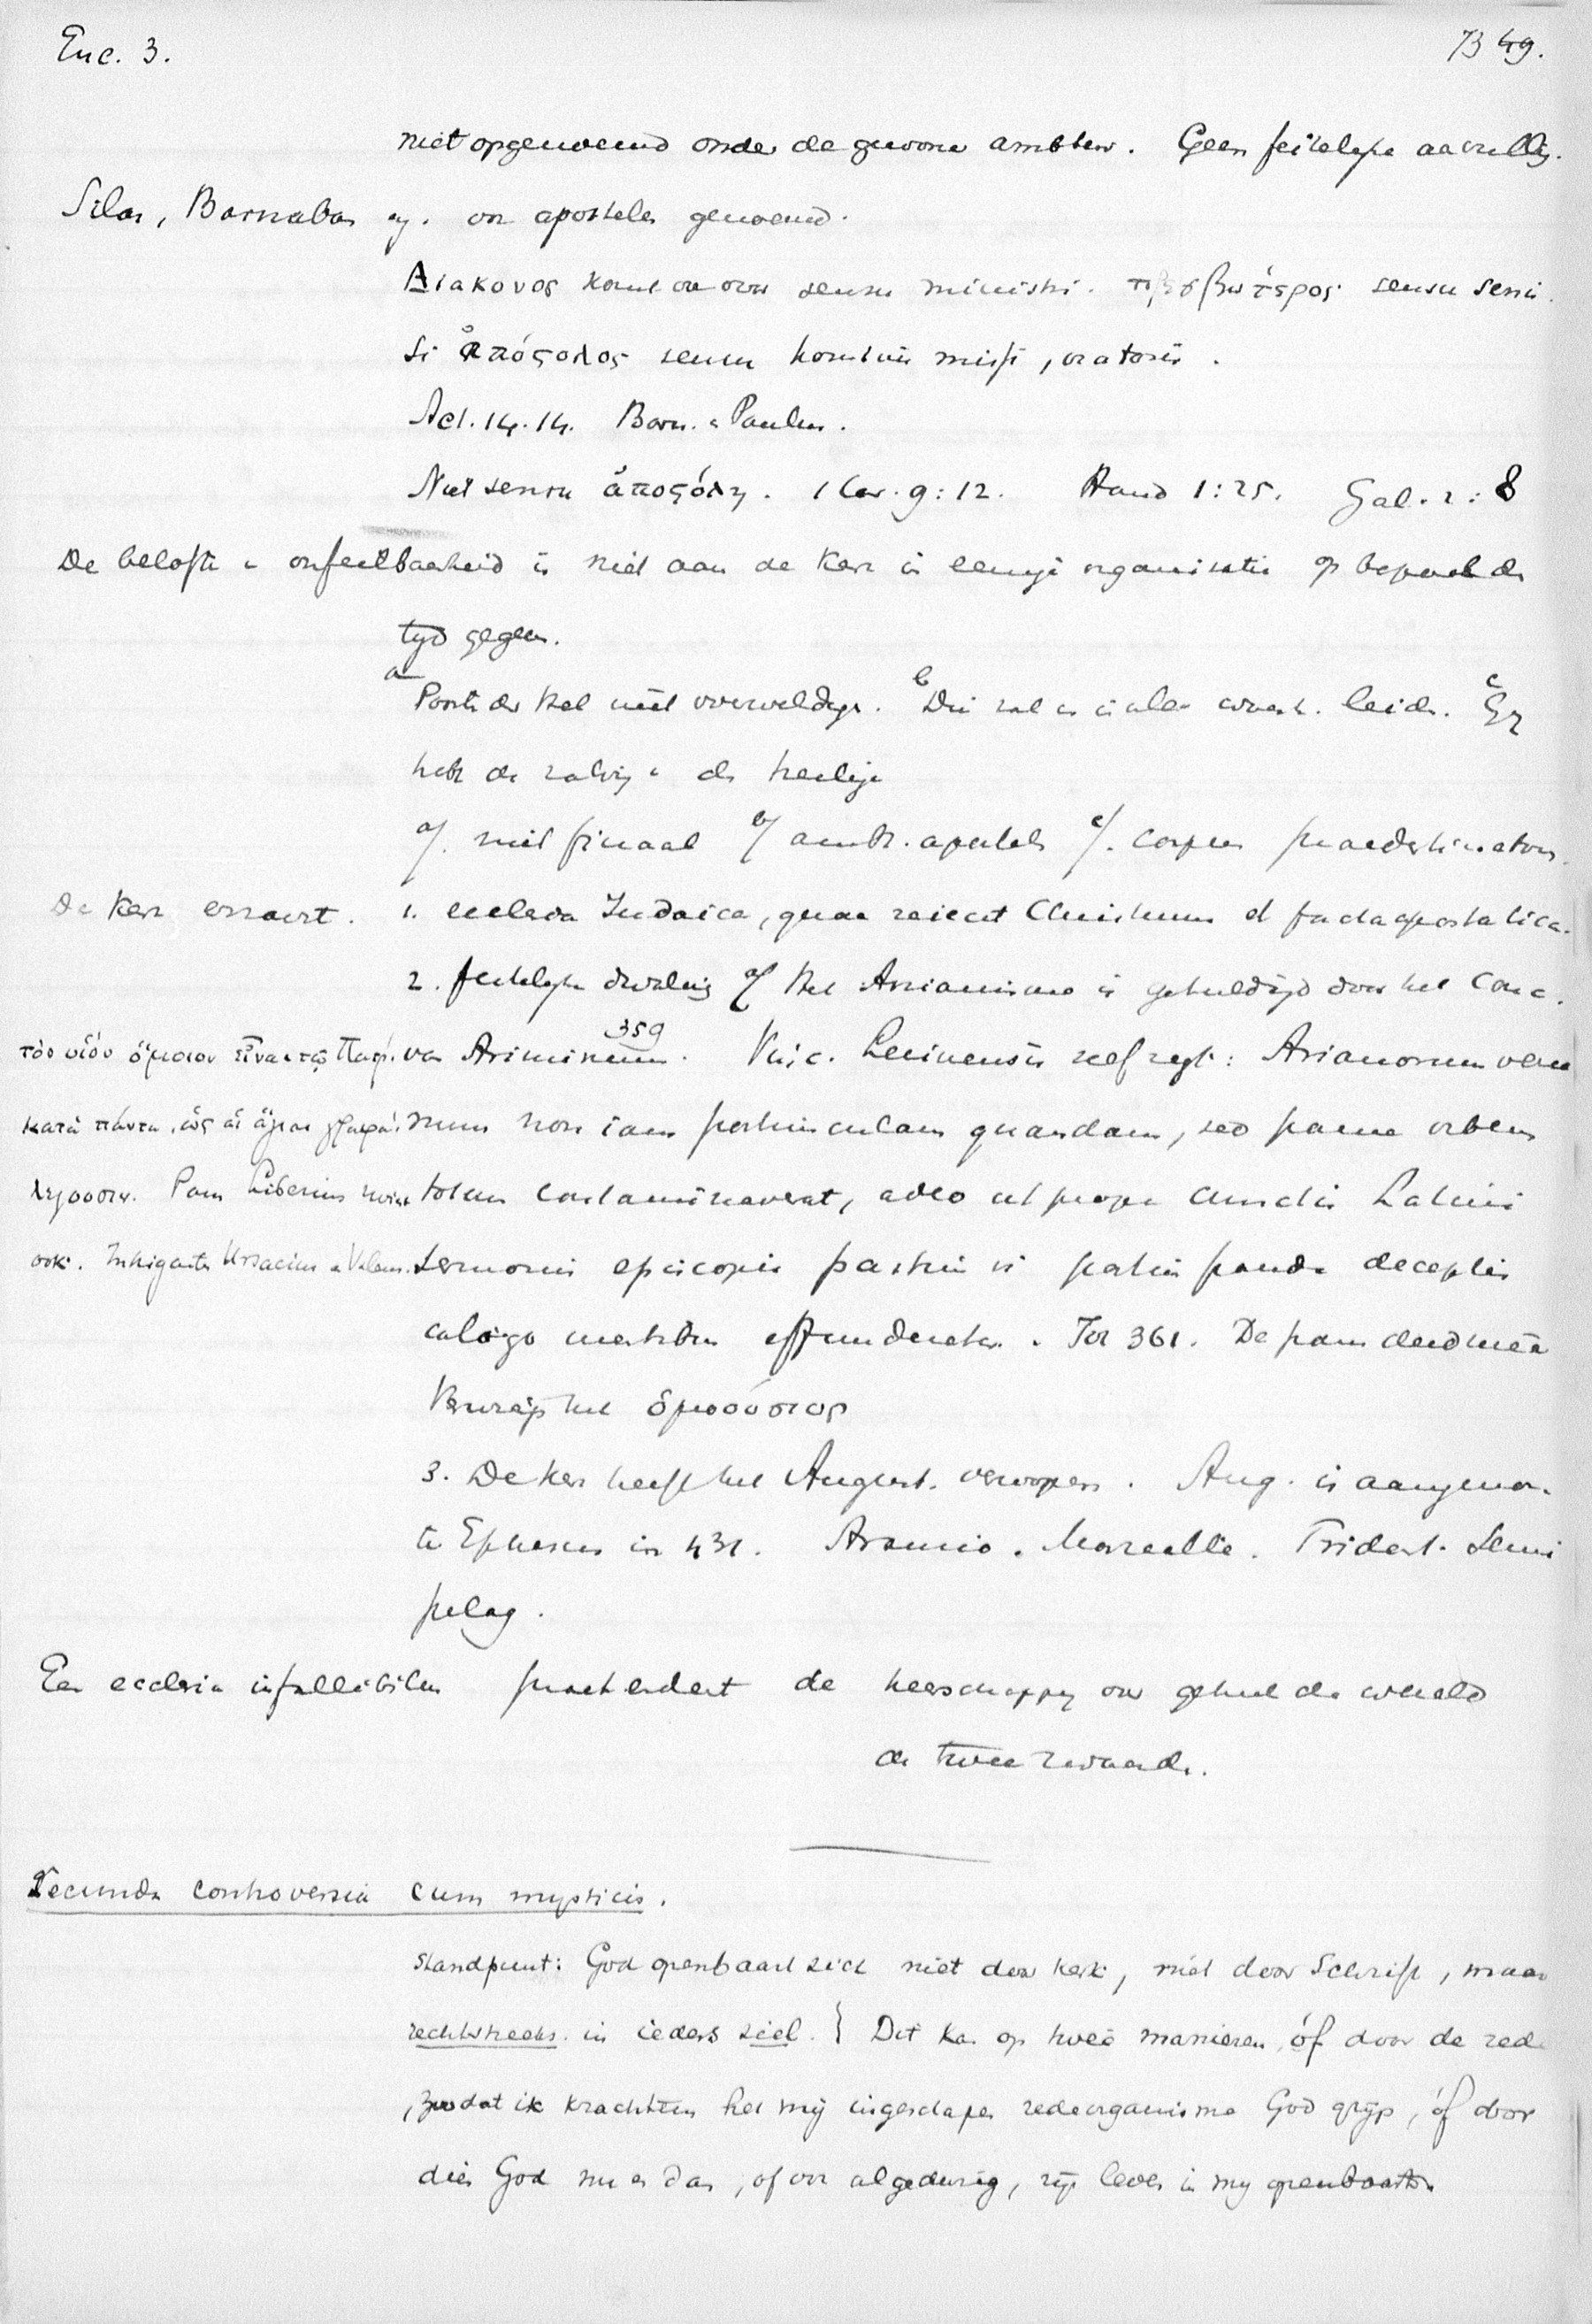 Enc. 3.
73 49.
niet opgenoemd onder de gewone ambten. Geen feitelijke aanvulling.
Silas, Barnabas zij. ook apostelen genoemd.
Διακονος komt ook voor sensu ministri. πρεσβυτερος sensu senis.
Si ἀπόςολος sensu hominis missi, oratoris.
Act. 14.14. Barn. en Paulus.
Niet sensu ἀποςόλη. 1 Cor. 9:12. Hand 1:25. Gal. 2:8
De belofte v. onfeilbaarheid is niet aan de kerk in eenige organisatie op bepaalden
tijd gegeven.
a Poorten der hel niet overweldigen. b Die zal u in alle waarh. leiden. c Gij
hebt de zalving v. den heilige
a/. niet finaal b/ ambt. apostels c/. corpus praedestinatorum.
De kerk erravit. 1. ecclesia Judaica, quae reiecit Christum et facta apostatica.
2. feitelijke dwaling of het Arrianisme is gehuldigd door het Conc.
van Ariminum 359. Vinc. Lerinensis zelf zegt: Arianorum vene
num non iam portiunculam quandam, sed paene orbem
totum contaminaverat, adeo ut prope cunctis Latini
sermonis episcopis partim vi partim fraude deceptis
caligo mentibus effunderetur. Tot 361. De paus deed mêe
τὸν υἱὸν ὅμοιον εἶναι τῷ Πατρὶ
κατὰ πάντα, ὡς αἱ ἅγιαι γραφαὶ
λέγουσιν. Paus Liberius
ook. Instigante Ursacius en Valens.
Verwierp het ὁμοούσιος
3. De kerk heeft het August. verworpen. Aug. is aangenom.
te Ephesus in 431. Arausio. Marcelle. Trident. Semi
pelag.
Een ecclesia infallibilis praetendeert de heerschappij over geheel de wereld
de twee zwaarden.
Secunda controversia cum mysticis.
Standpunt: God openbaart zich niet door kerk, niet door Schrift, maar
rechtstreeks in ieders ziel. } Dit kan op tweeë manieren, óf door de rede
, zoodat ik krachtens het mij ingeschapen redeorganisme God grijp, óf door
dien God nu en dan, of ook algedurig, zijn leven in mij openbaart.